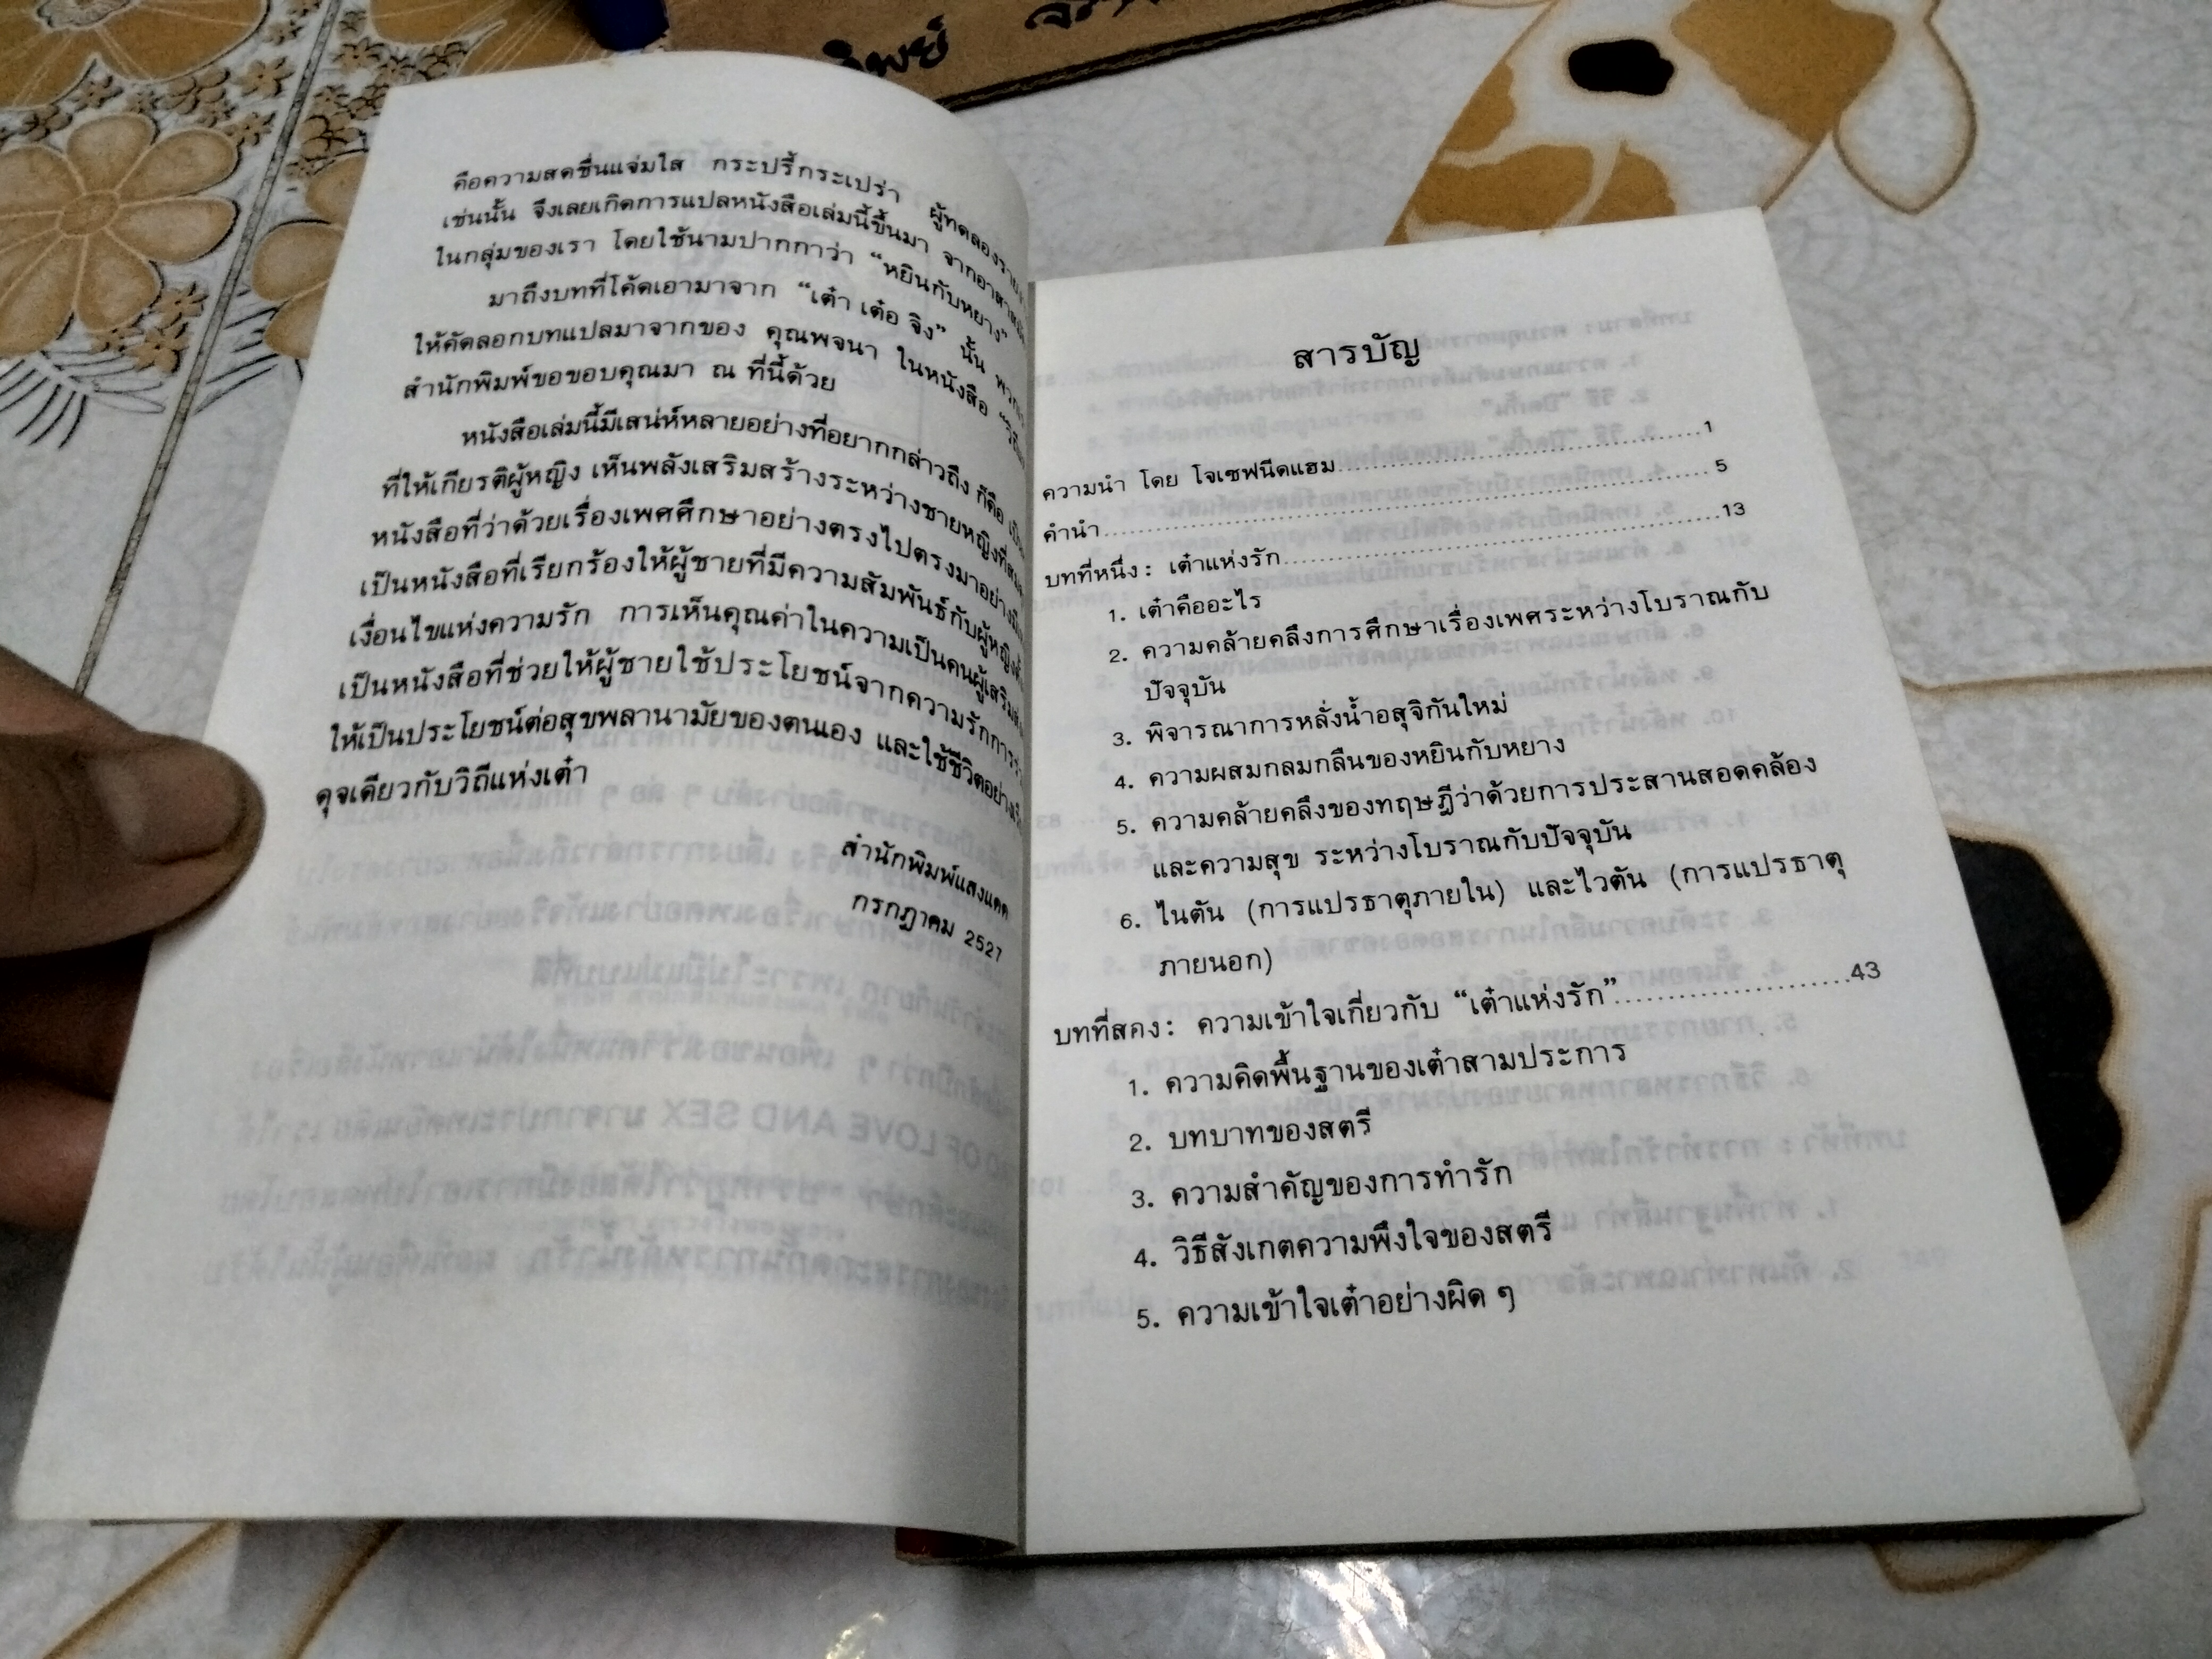 ทิพย์
คือความสดชื่นแจ่มใส กระปรี้กระเปร่า ผู้ทดลองราย
เช่นนั้น จึงเลยเกิดการแปลหนังสือเล่มนี้ขึ้นมา จากอาสาสมัคร
ในกลุ่มของเรา โดยใช้นามปากกาว่า “หยินกับหยาง”
มาถึงบทที่โค้ดเอามาจาก “เต๋า เต๋อ จิง” นั้น พวก
ให้คัดลอกบทแปลมาจากของ คุณพจนา ในหนังสือ
สำนักพิมพ์ขอขอบคุณมา ณ ที่นี้ด้วย
หนังสือเล่มนี้มีเสน่ห์หลายอย่างที่อยากกล่าวถึง ก็คือ เป็น
ที่ให้เกียรติผู้หญิง เห็นพลังเสริมสร้างระหว่างชายหญิงที่
หนังสือที่ว่าด้วยเรื่องเพศศึกษาอย่างตรงไปตรงมาอย่าง
เป็นหนังสือที่เรียกร้องให้ผู้ชายที่มีความสัมพันธ์กับผู้หญิง
เงื่อนไขแห่งความรัก การเห็นคุณค่าในความเป็นคนผู้เสริม
เป็นหนังสือที่ช่วยให้ผู้ชายใช้ประโยชน์จากความรักการ
ให้เป็นประโยชน์ต่อสุขพลานามัยของตนเอง และใช้ชีวิตอย่าง
ดุจเดียวกับวิถีแห่งเต๋า
สำนักพิมพ์แสงแดด
กรกฎาคม 2527
สารบัญ
ความนำ โดย โจเซฟนีดแฮม..............................1
คำนำ..............................5
บทที่หนึ่ง : เต๋าแห่งรัก..............................13
1. เต๋าคืออะไร
2. ความคล้ายคลึงการศึกษาเรื่องเพศระหว่างโบราณกับ
ปัจจุบัน
3. พิจารณาการหลั่งน้ำอสุจิกันใหม่
4. ความผสมกลมกลืนของหยินกับหยาง
5. ความคล้ายคลึงของทฤษฎีว่าด้วยการประสานสอดคล้อง
และความสุข ระหว่างโบราณกับปัจจุบัน
6. ไนตัน (การแปรธาตุภายใน) และไวตัน (การแปรธาตุ
ภายนอก)
บทที่สอง : ความเข้าใจเกี่ยวกับ “เต๋าแห่งรัก”..............................43
1. ความคิดพื้นฐานของเต๋าสามประการ
2. บทบาทของสตรี
3. ความสำคัญของการทำรัก
4. วิธีสังเกตความพึงใจของสตรี
5. ความเข้าใจเต๋าอย่างผิด ๆ